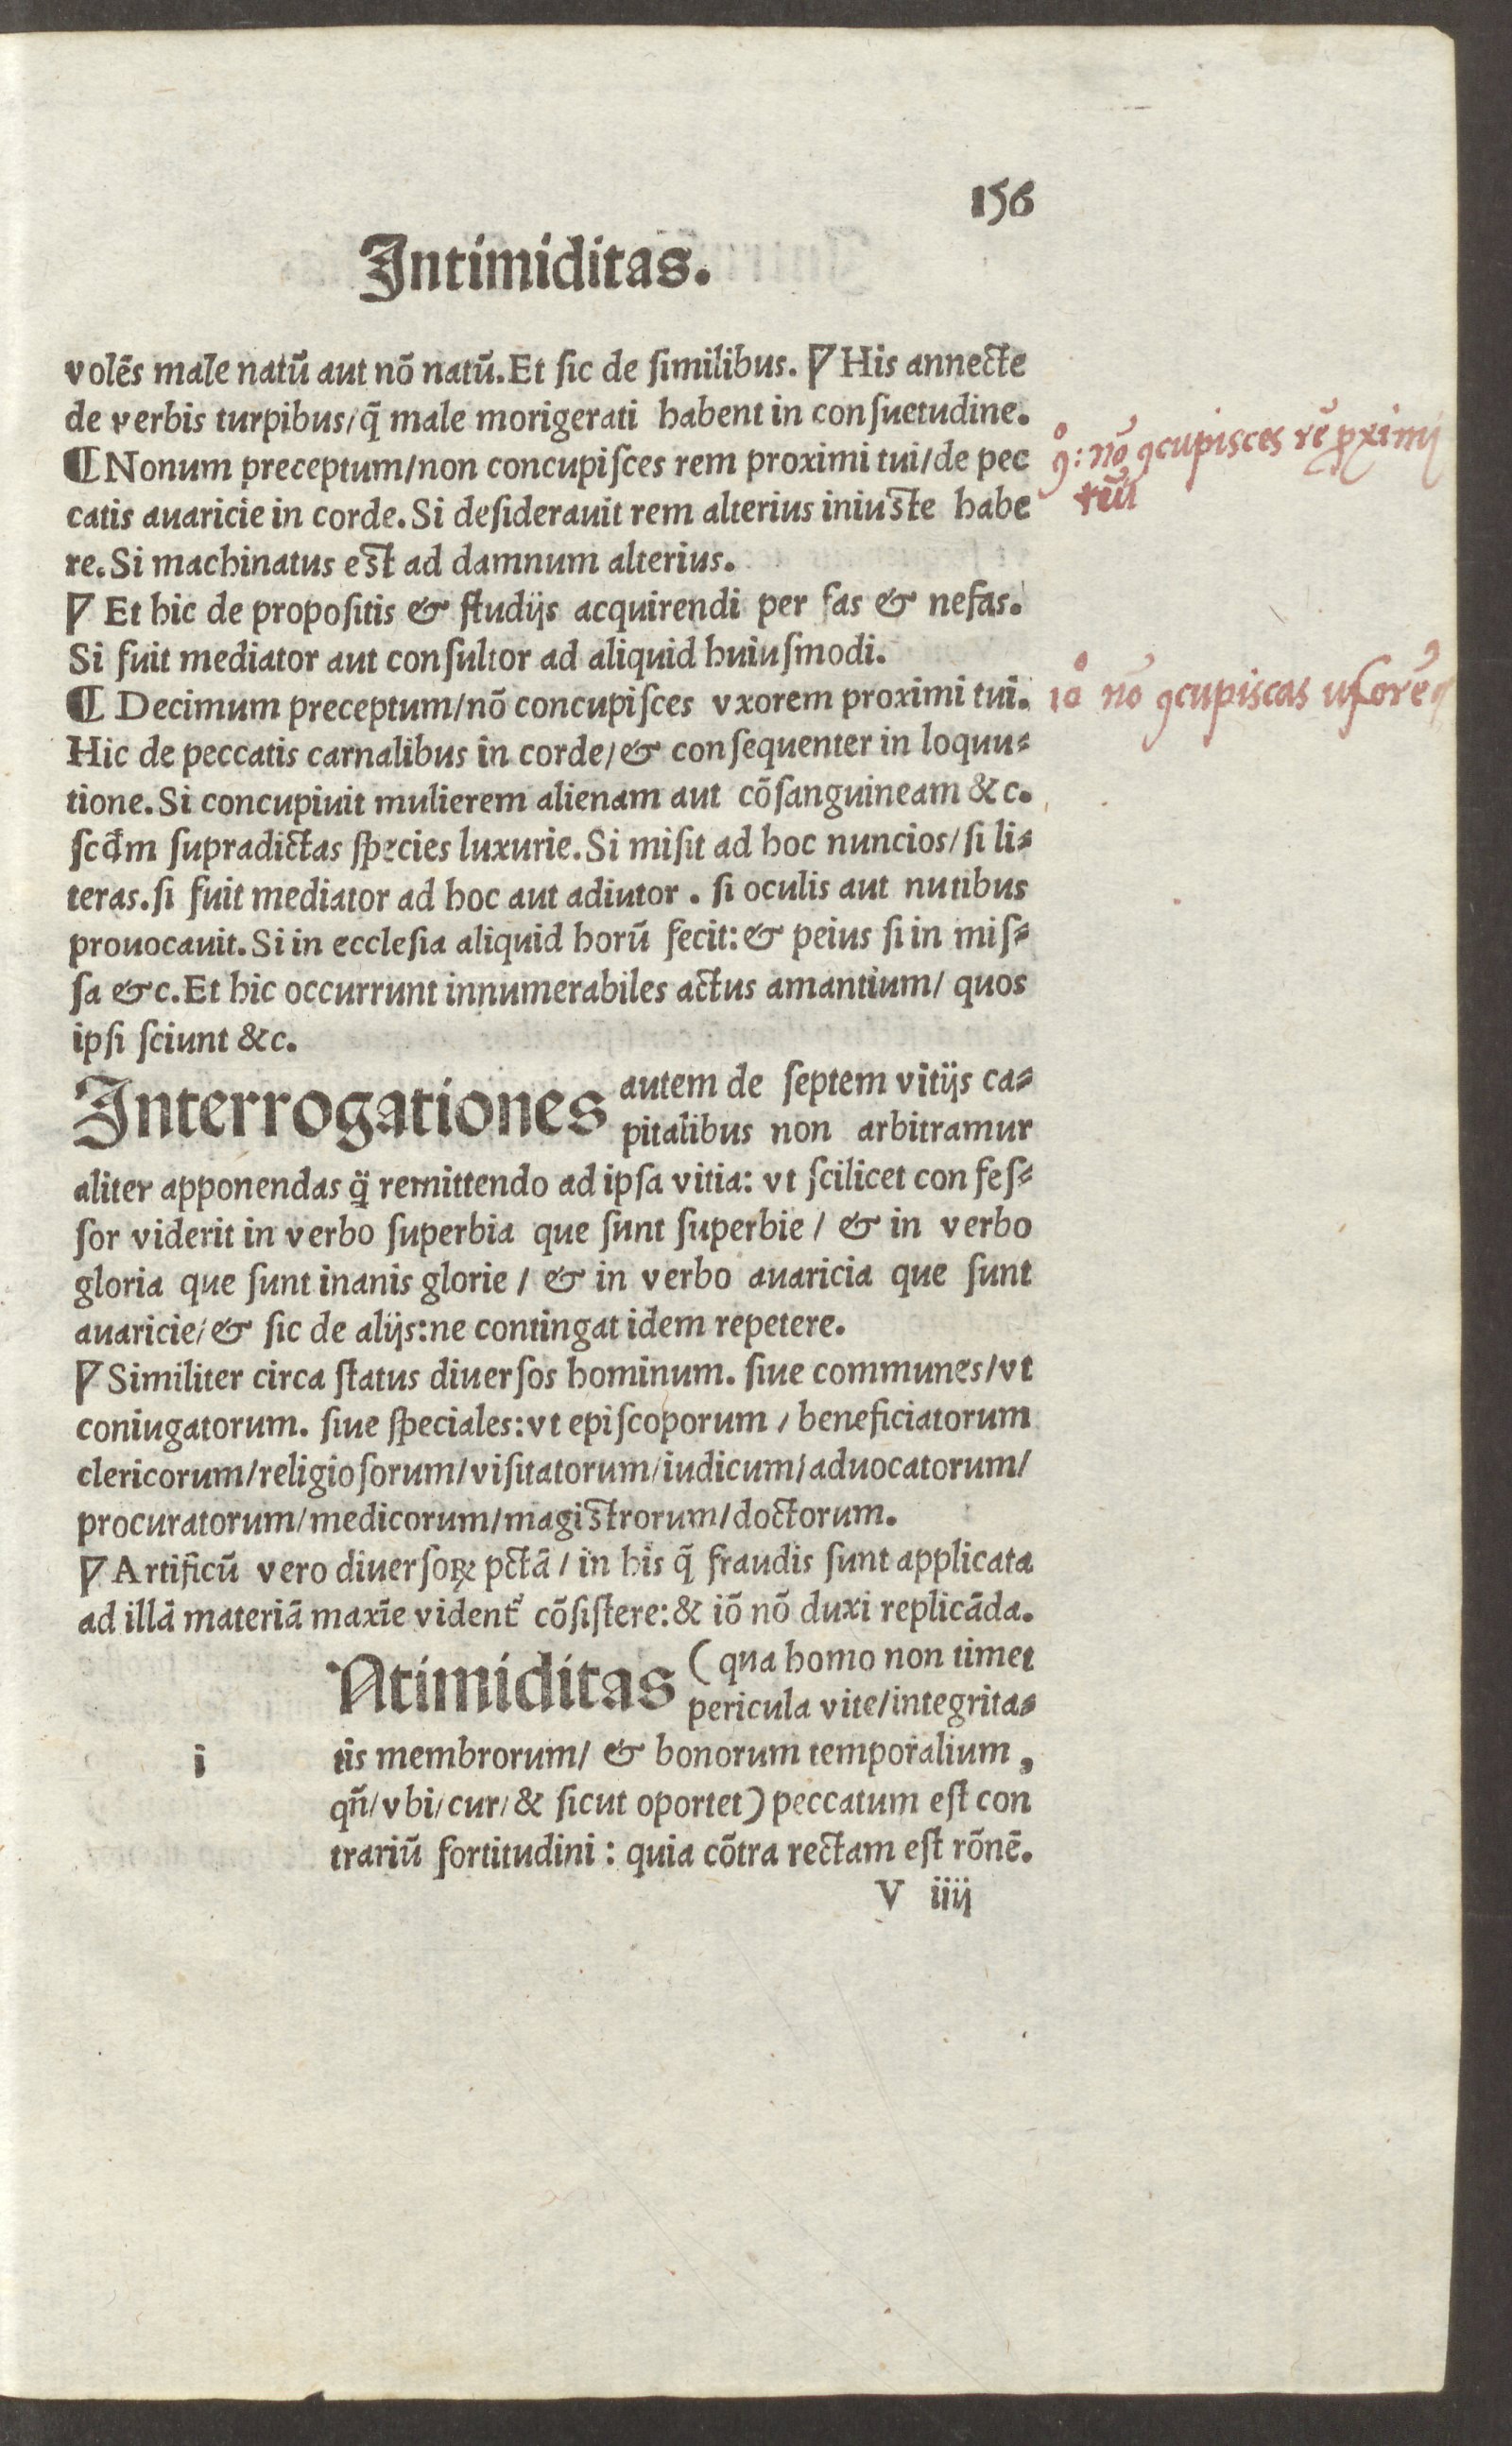 156
Intimiditas.
volẽs male natũ aut nõ natũ. Et sic de similibus. ¶ His annecte
de verbis turpibus/q̃ male morigerati habent in consuetudine.
¶ Nonum preceptum/non concupisces rem proximi tui/de pec
catis auaricie in corde. Si desiderauit rem alterius iniuste habe
re. Si machinatus est ad damnum alterius.
¶ Et hic de propositis & studijs acquirendi per fas & nefas.
Si fuit mediator aut consultor ad aliquid huiusmodi.
¶ Decimum preceptum/nõ concupisces vxorem proximi tui.
Hic de peccatis carnalibus in corde/& consequenter in loquu-
tione. Si concupiuit mulierem alienam aut cõsanguineam &c.
scđm supradictas species luxurie. Si misit ad hoc nuncios/si li-
teras. si fuit mediator ad hoc aut adiutor. si oculis aut nutibus
prouocauit. Si in ecclesia aliquid horũ fecit: & peius si in mis-
sa &c. Et hic occurrunt innumerabiles actus amantium/ quos
ipsi sciunt &c.
Interrogationes autem de septem vitijs ca-
pitalibus non arbitramur
aliter apponendas q̃ remittendo ad ipsa vitia: vt scilicet confes-
sor viderit in verbo superbia que sunt superbie / & in verbo
gloria que sunt inanis glorie / & in verbo auaricia que sunt
auaricie/& sic de alijs: ne contingat idem repetere.
¶ Similiter circa status diuersos hominum. siue communes/vt
coniugatorum. siue speciales: vt episcoporum / beneficiatorum
clericorum/religiosorum/visitatorum/iudicum/aduocatorum/
procuratorum/medicorum/magistrorum/doctorum.
¶ Artificũ vero diuersoꝝ pctã / in his q̃ fraudis sunt applicata
ad illã materiã maxĩe vident᷑ cõsistere: & iõ nõ duxi replicãda.
i Ntimiditas (qua homo non timet
pericula vite/integrita-
tis membrorum/ & bonorum temporalium,
qñ/vbi/cur/& sicut oportet) peccatum est con
trariũ fortitudini: quia cõtra rectam est rõnẽ.
V iiij
9º: nõ ꝯcupisces rẽ ꝓximij
tui
10 nõ ꝯcupiscas uxorẽ